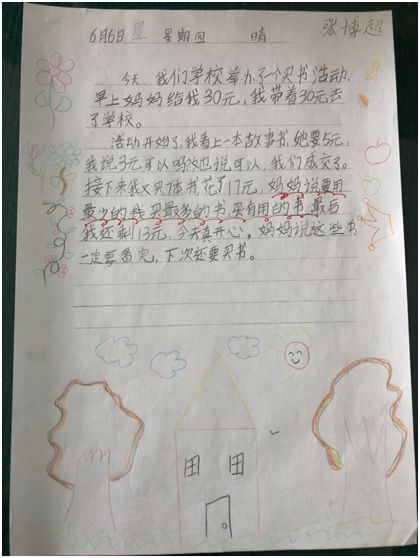 6月6日 星 星期四 晴 张博超
今天,我们学校举办了一个买书活动,
早上妈妈给我30元,我带着30元去
了学校。
活动开始了,我看上一本故事书,她要5元,
我说3元可以吗?她说可以,我们成交了。
接下来我又买7本书花了17元,妈妈说要用
最少的钱买最多的书,买有用的书,最后
我还剩13元,今天真开心。妈妈说这些书
一定要看完,下次还要买书。